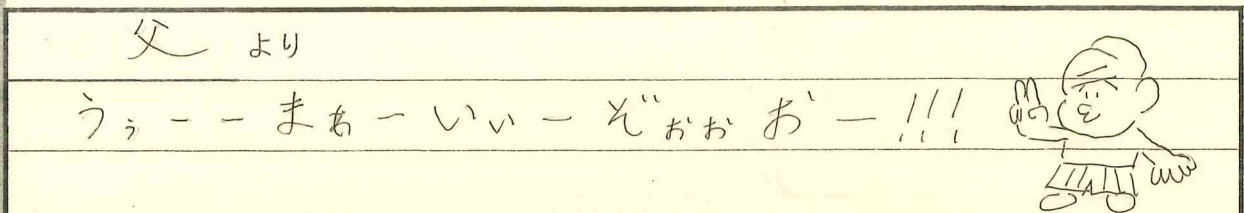 父より
うぅーーまぁーいぃーぞぉぉおー!!!